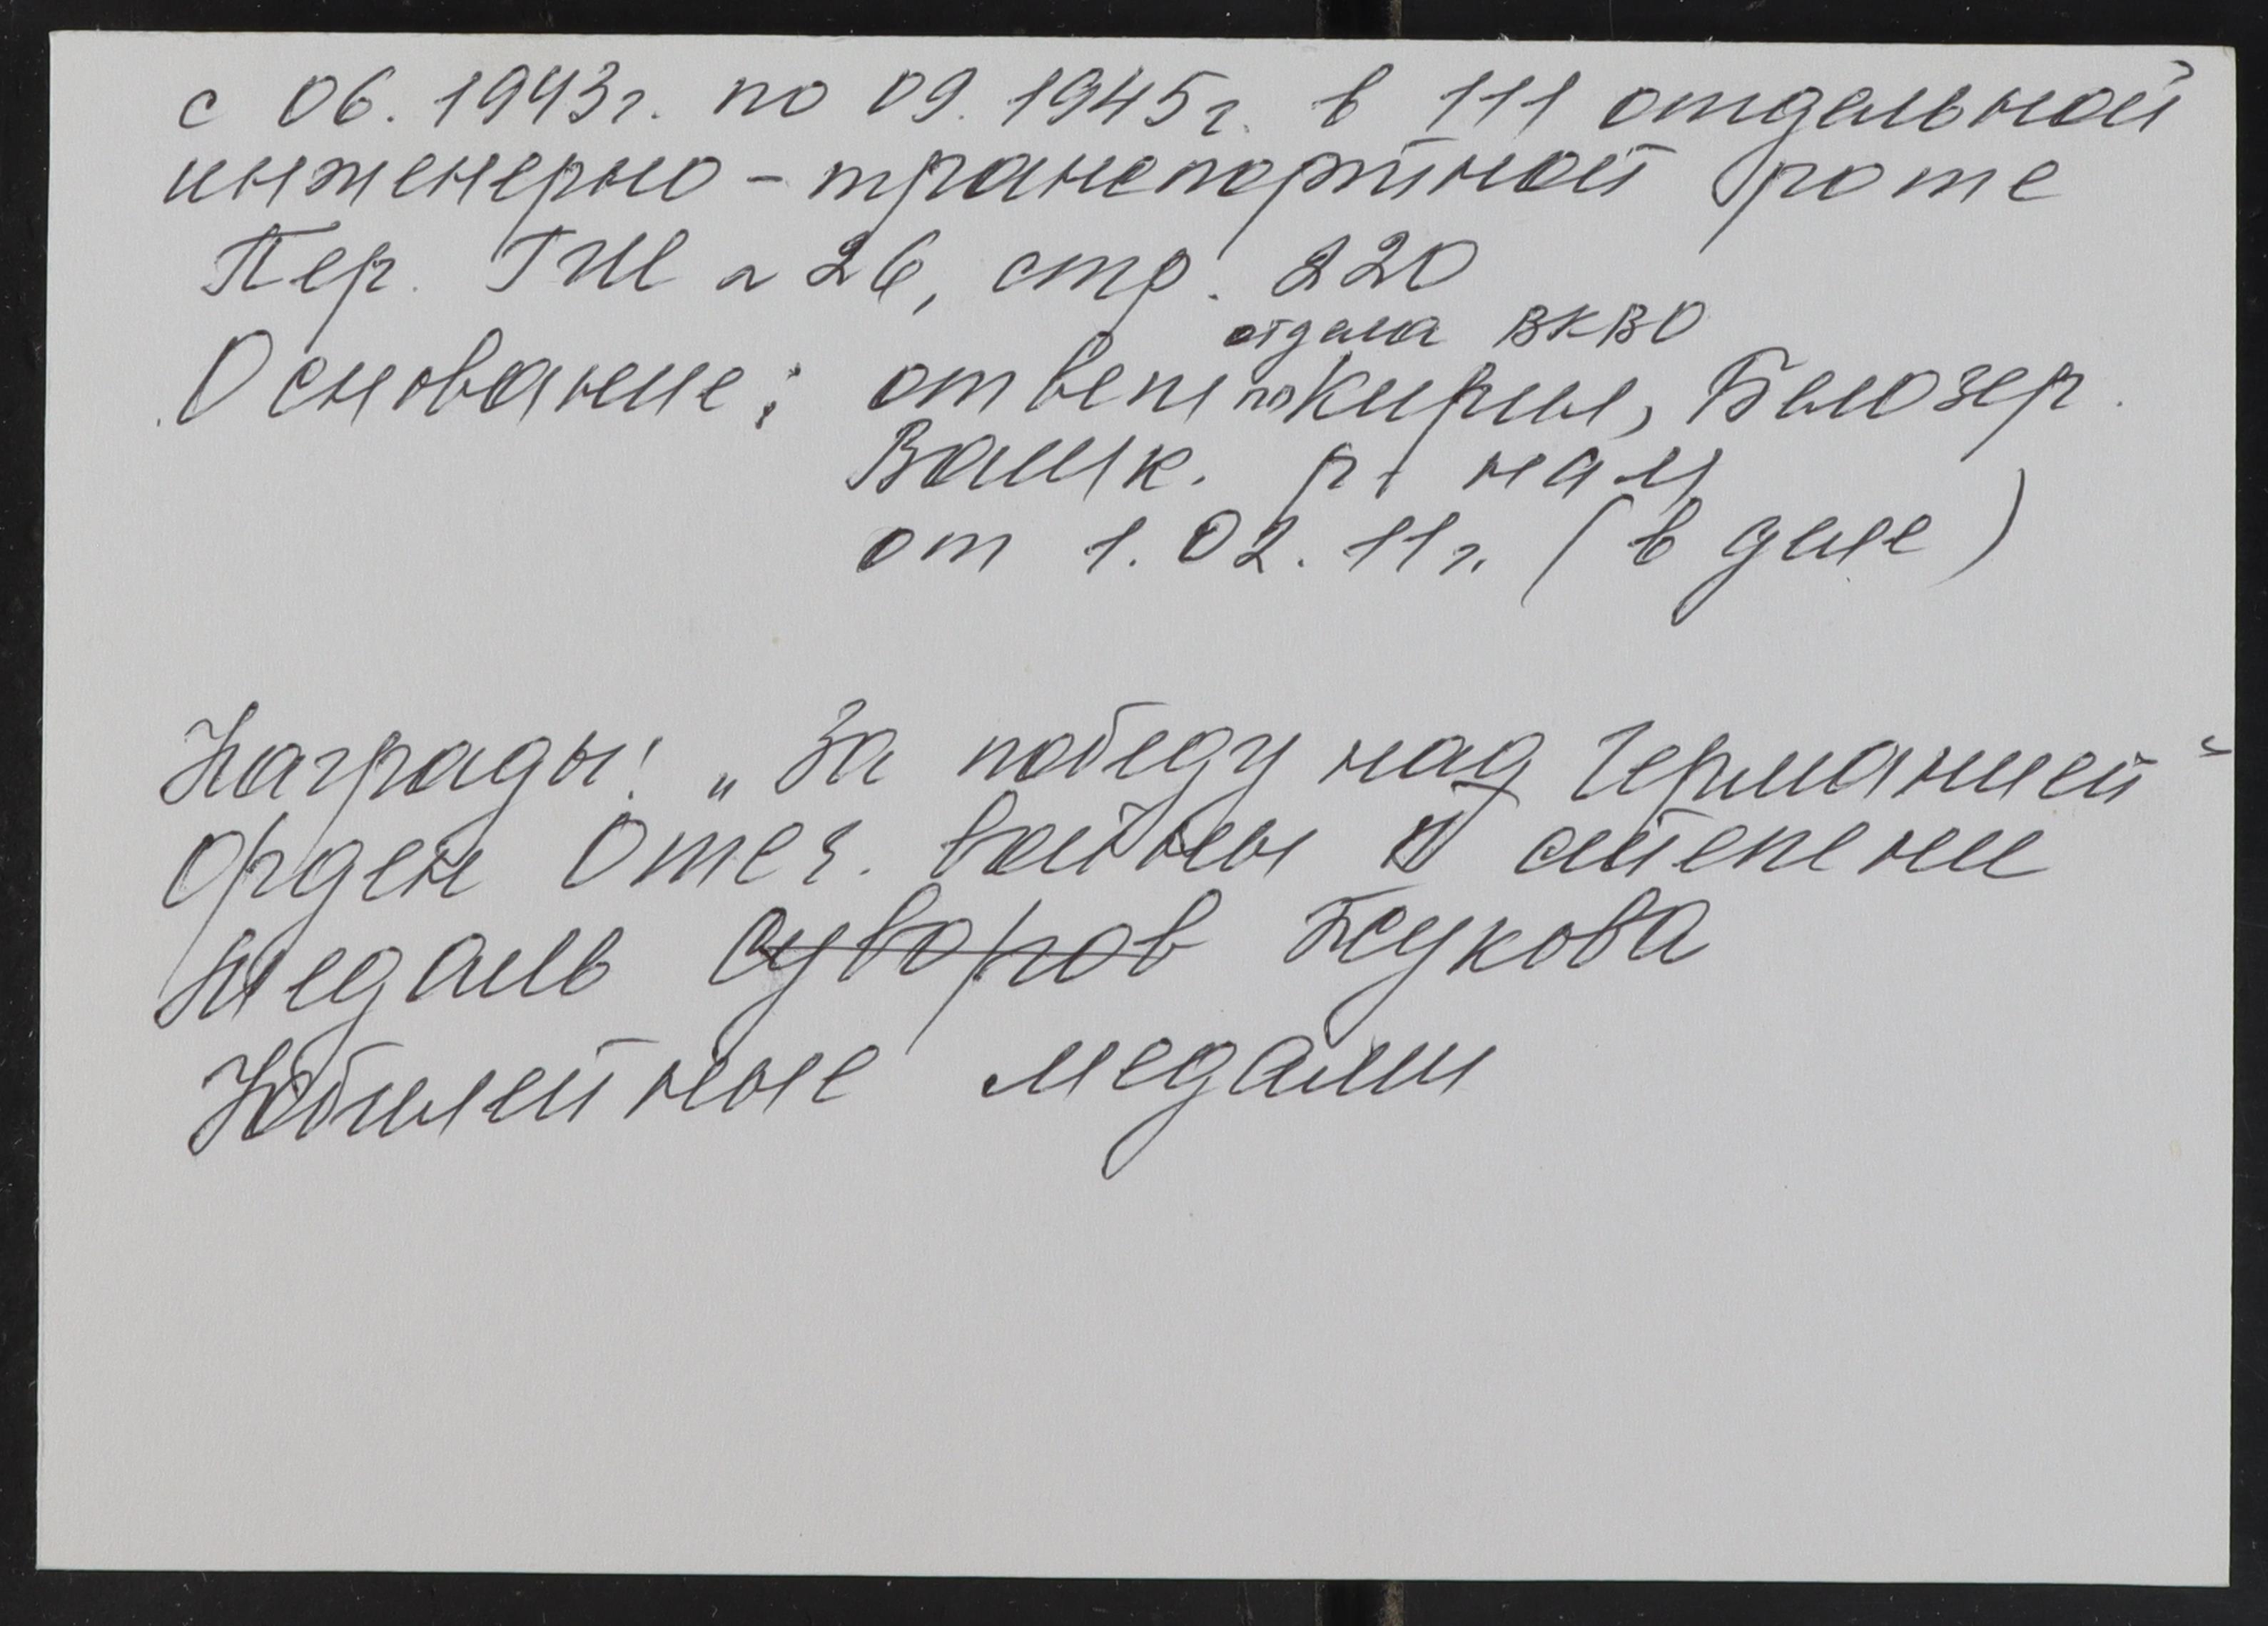 с 06. 1943г. по 09. 1945г. в 111 отдельной
инженерно - транспортной роте
Пер. ГШ № 26, стр. 220
отдела ВКВО
Основание: ответ по Кирил, Белозер.
Вашк. р-нам
от 1.02.11г. (в деле)
Награды: „За победу над Германией"
Орден Отеч. войны II степени
Медаль Суворов Жукова
Юбилейные медали